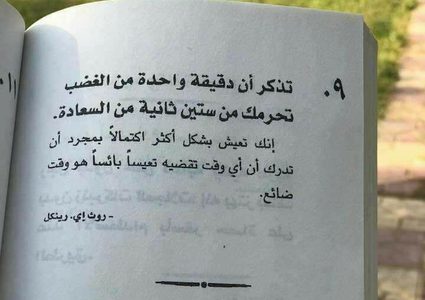 ٩.
تذكر أن دقيقة واحدة من الغضب
تحرمك من ستين ثانية من السعادة.
إنك تعيش بشكل أكثر اكتمالاً بمجرد أن
تدرك أن أي وقت تقضيه تعيساً بائساً هو وقت
ضائع.
- روث إي. رينكل